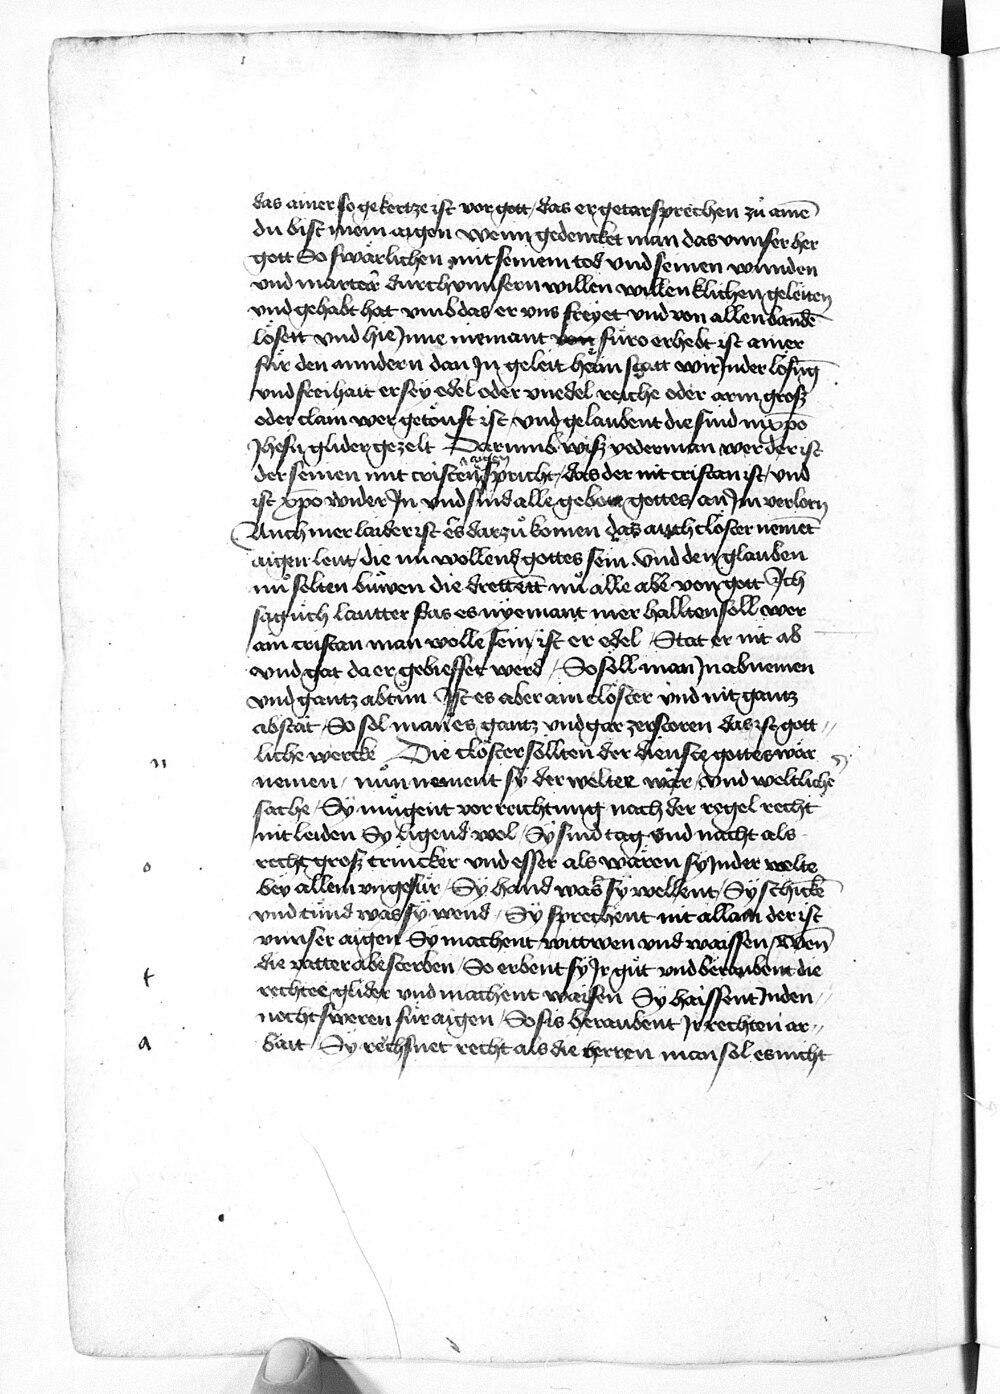 das ainer so gehertze ist vor gott / das er getar sprechen zů ainē
du bist mein aigen wenn gedencket man das vnnser her
gott So swärlichen mit seinem tod vnd seinen wunden
vnd marter durch vnnsern willen willenklichen geleiten
vnd gehabt hat vmb das er vns freyet vnd von allen bandē
lösett vnd hie Jnne niemant fúro erhebt ist ainer
für den anndern dan Jn geleit Jn der lösūg
vnd freihait er sey edel oder vnedel reiche oder arm groß
oder clain wer getöufft ist / vnd gelaubent die sind in xpo
Jhesu glider gezelt Darumb wiß yederman wer der ist
der seinen mit cristen aigen spricht / das der nit cristan ist / vnd
ist xpo wider Jn vnd sind alle gebott gottes an Jm verlorn
Auch mer laider ist es darzů komen das auch clöster nement
aigen leut / die nů wollend gottes sein . Vnd den glauben
nů selten búwen die drettent nů alle abe von gott Jch
sag úch lautter das es nyemant mer hallten soll wer
ain cristan man wolle sein / ist er edel / Stat er nit ab
vnd gat da er gebiesset werd / So soll man Jn abnemen
vnd gantz abtůn Jst es aber ain clöster vnd nit gantz
abstät / So sol man es gantz vnd gar zerstoren das ist gott //
liche wercke Die clöster sollten der dienste gottes war
n
nemen / nůn nement sy der welte war / Vnd weltliche
sache / Sy múgent vor reichtung nach der regel recht
nit leiden Sy ligend wol / Sy sind tag vnd nacht als
o
recht groß trincker vnd esser als wären sy Jn der welte
bey allem vngefär / Sy hand was sy wellent / Sy schickē
vnd tünd was sy wend / Sy sprechent nit allain der ist
vnnser aigen Sy machent wittwen vnd waissen / Wen
t
die vatter abesterben / So erbent sy Jr gůt vnd beraubent die
rechten glider vnd machent waisen Sy haissent Jnden //
necht sweren für aigen / So sis beraubent Jr rechten ar //
a
bait / Sy rechtnet recht als die herren man sol es nicht